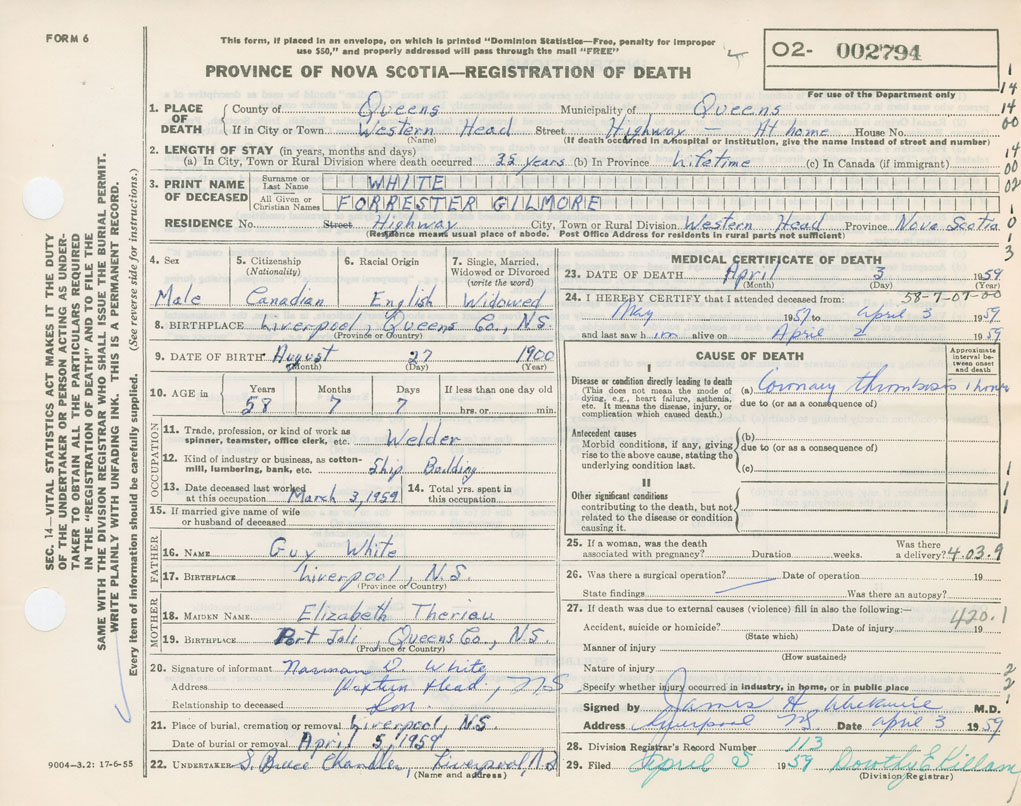 FORM 6
This form, if placed in an envelope, on which is printed "Dominion Statistics—Free, penalty for improper
use $50," and properly addressed will pass through the mail "FREE"
PROVINCE OF NOVA SCOTIA—REGISTRATION OF DEATH
02- 002794
For use of the Department only
1. PLACE OF DEATH { County of Queens Municipality of Queens
If in City or Town Western Head Street Highway — At home House No.
(Name) (If death occurred in a hospital or institution, give the name instead of street and number)
2. LENGTH OF STAY (in years, months and days)
(a) In City, Town or Rural Division where death occurred 35 years (b) In Province Lifetime (c) In Canada (if immigrant)
3. PRINT NAME OF DECEASED { Surname or Last Name WHITE
All Given or Christian Names FORRESTER GILMORE
RESIDENCE No. Street Highway City, Town or Rural Division Western Head Province Nova Scotia
(Residence means usual place of abode. Post Office Address for residents in rural parts not sufficient)
4. Sex 5. Citizenship (Nationality) 6. Racial Origin 7. Single, Married, Widowed or Divorced (write the word)
Male Canadian English Widowed
8. BIRTHPLACE Liverpool, Queens Co., N.S.
(Province or Country)
9. DATE OF BIRTH August 27 1900
(Month) (Day) (Year)
10. AGE in Years Months Days If less than one day old
58 7 7 hrs. or min.
OCCUPATION
11. Trade, profession, or kind of work as spinner, teamster, office clerk, etc. Welder
12. Kind of industry or business, as cotton-mill, lumbering, bank, etc. Ship Building
13. Date deceased last worked at this occupation March 3, 1959 14. Total yrs. spent in this occupation
15. If married give name of wife or husband of deceased
FATHER
16. NAME Guy White
17. BIRTHPLACE Liverpool, N.S.
(Province or Country)
MOTHER
18. MAIDEN NAME Elizabeth Theriau
19. BIRTHPLACE Port Joli, Queens Co., N.S.
(Province or Country)
20. Signature of informant Norman D. White
Address Western Head, N.S
Relationship to deceased Son
21. Place of burial, cremation or removal Liverpool, N.S.
Date of burial or removal April 5, 1959
22. UNDERTAKER S. Bruce Chandler, Liverpool, N.S
(Name and address)
9004—3.2: 17-6-55
MEDICAL CERTIFICATE OF DEATH
23. DATE OF DEATH April 3 1959
(Month) (Day) (Year)
58-7-07-00
24. I HEREBY CERTIFY that I attended deceased from:
May 1957 to April 3 1959
and last saw him alive on April 2 1959
CAUSE OF DEATH
Approximate interval between onset and death
I
Disease or condition directly leading to death
(This does not mean the mode of dying, e.g., heart failure, asthenia, etc. It means the disease, injury, or complication which caused death.)
(a) Coronary thrombosis 1 hour
due to (or as a consequence of)
Antecedent causes
Morbid conditions, if any, giving rise to the above cause, stating the underlying condition last.
(b)
due to (or as a consequence of)
(c)
II
Other significant conditions
contributing to the death, but not related to the disease or condition causing it.
25. If a woman, was the death associated with pregnancy? Duration weeks. Was there a delivery?
4.03.9
26. Was there a surgical operation? Date of operation 19
State findings Was there an autopsy?
27. If death was due to external causes (violence) fill in also the following:—
420.1
Accident, suicide or homicide? Date of injury 19
(State which)
Manner of injury
(How sustained?)
Nature of injury
Specify whether injury occurred in industry, in home, or in public place
Signed by James A. M.D.
Address Liverpool NS Date April 3 1959
28. Division Registrar's Record Number 113
29. Filed April 5 1959 Dorothy E Killam
(Division Registrar)
SEC. 14—VITAL STATISTICS ACT MAKES IT THE DUTY
OF THE UNDERTAKER OR PERSON ACTING AS UNDER-
TAKER TO OBTAIN ALL THE PARTICULARS REQUIRED
IN THE "REGISTRATION OF DEATH" AND TO FILE THE
SAME WITH THE DIVISION REGISTRAR WHO SHALL ISSUE THE BURIAL PERMIT.
WRITE PLAINLY WITH UNFADING INK. THIS IS A PERMANENT RECORD.
Every item of information should be carefully supplied. (See reverse side for instructions.)
1
14
14
00
14
00
02
1
0
1
3
1
1
1
2
2
1